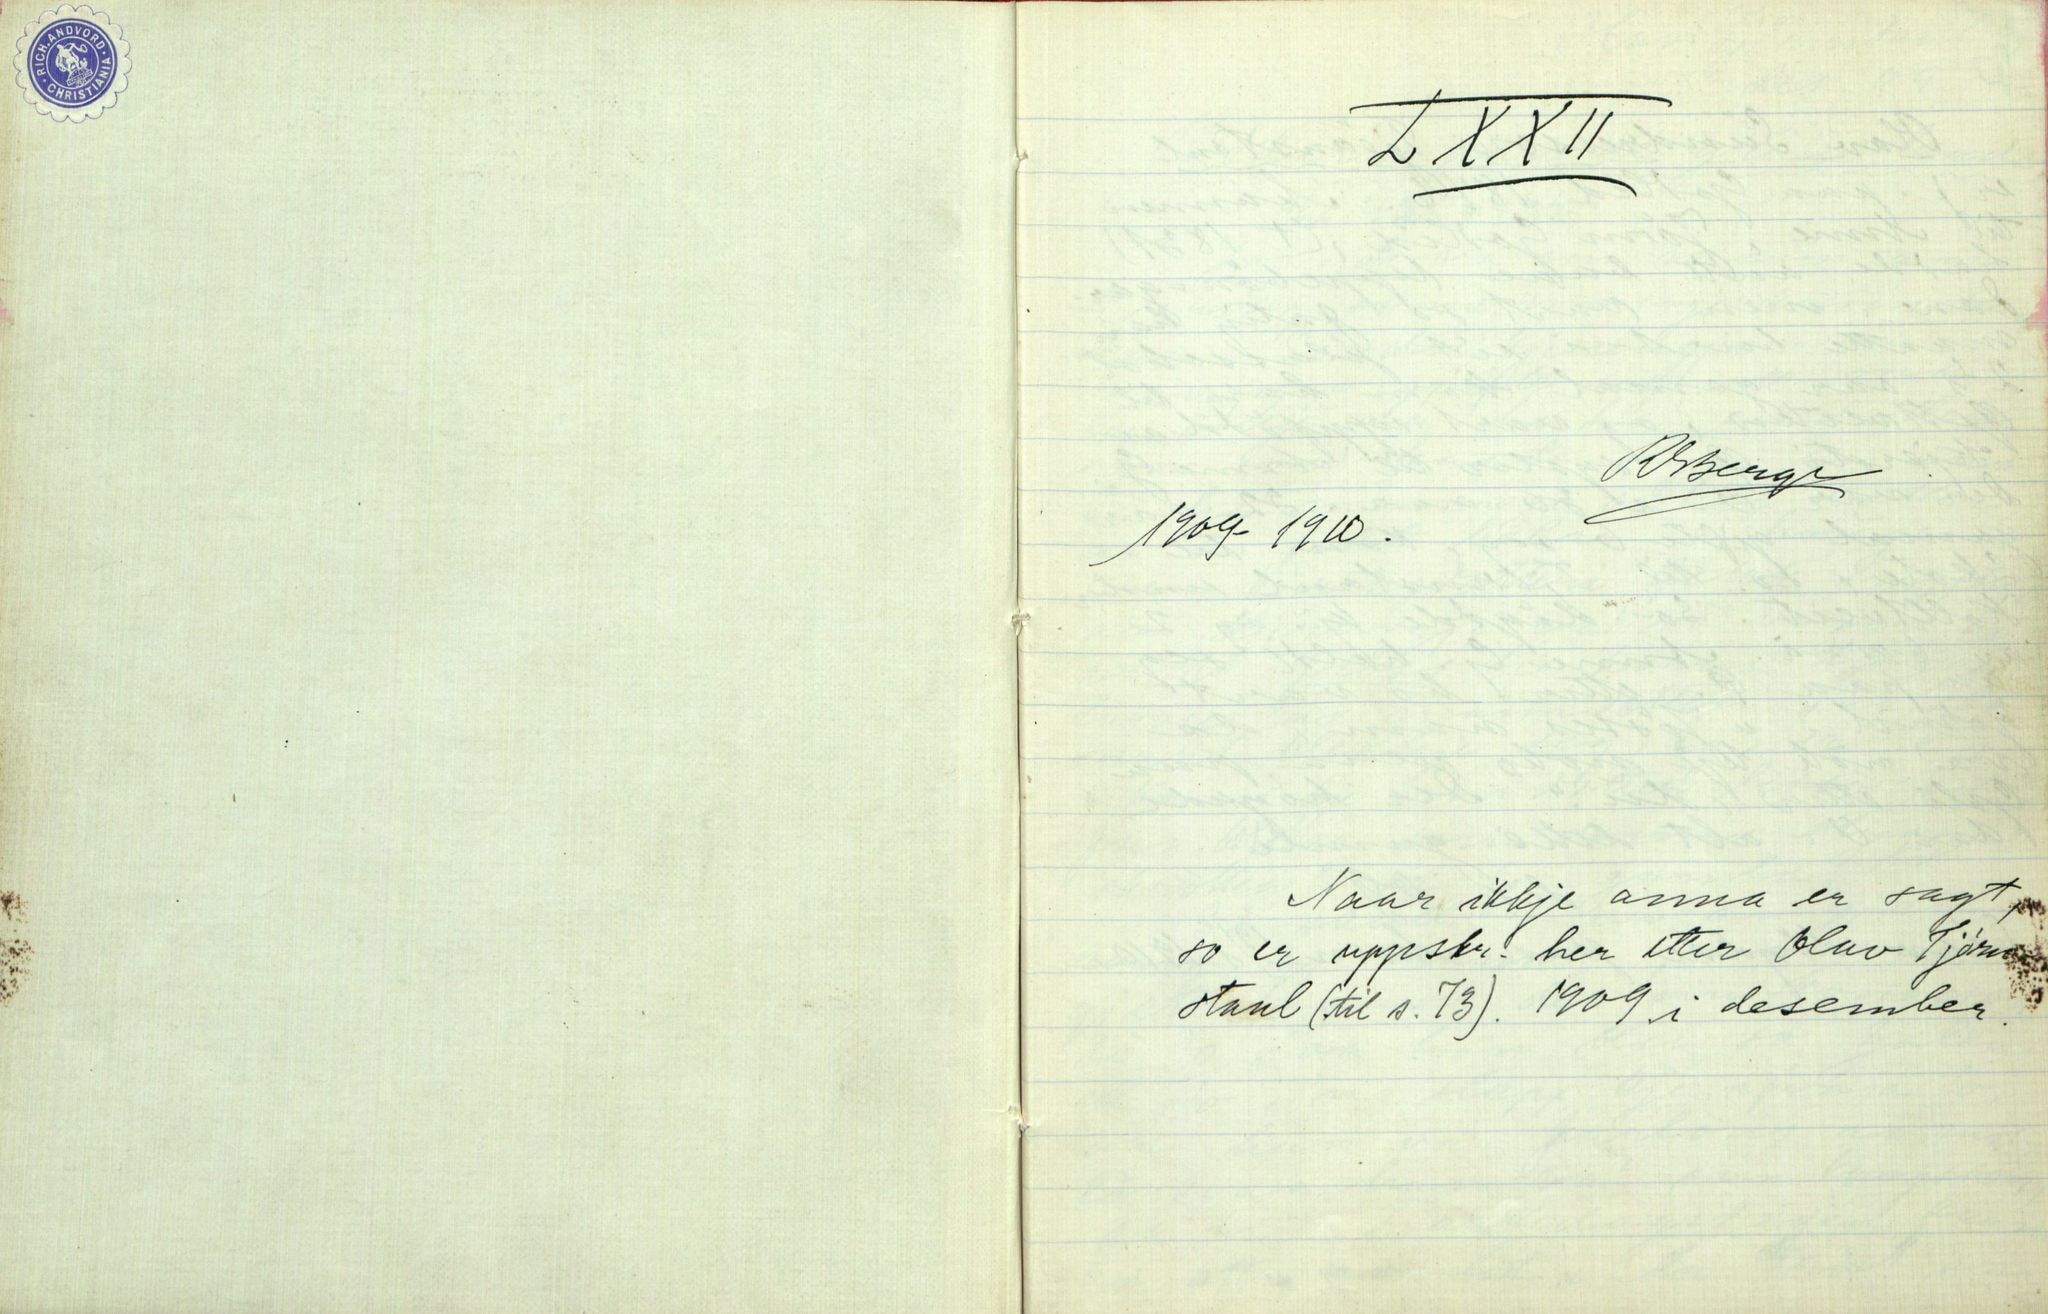 RICH. ANDVORD · CHRISTIANIA ·
LXXII
RSBerge
1909-1910.
Naar ikkje anna er sagt,
so er uppskr. her etter Olav Tjørn
staul (til s. 73). 1909 i desember.